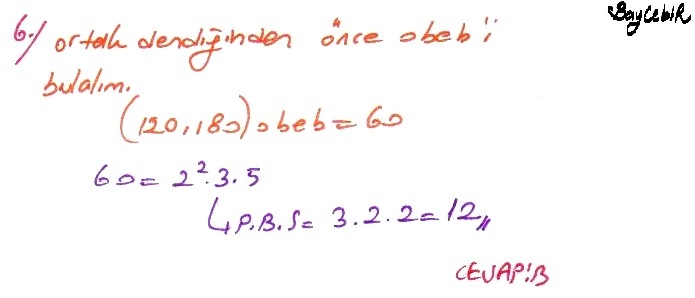 BayCebir
6-) ortak dendiğinden önce obeb'i
bulalım.
(120,180)obeb = 60
60 = 2².3.5
↳ P.B.S = 3.2.2 = 12,,
CEVAP:B